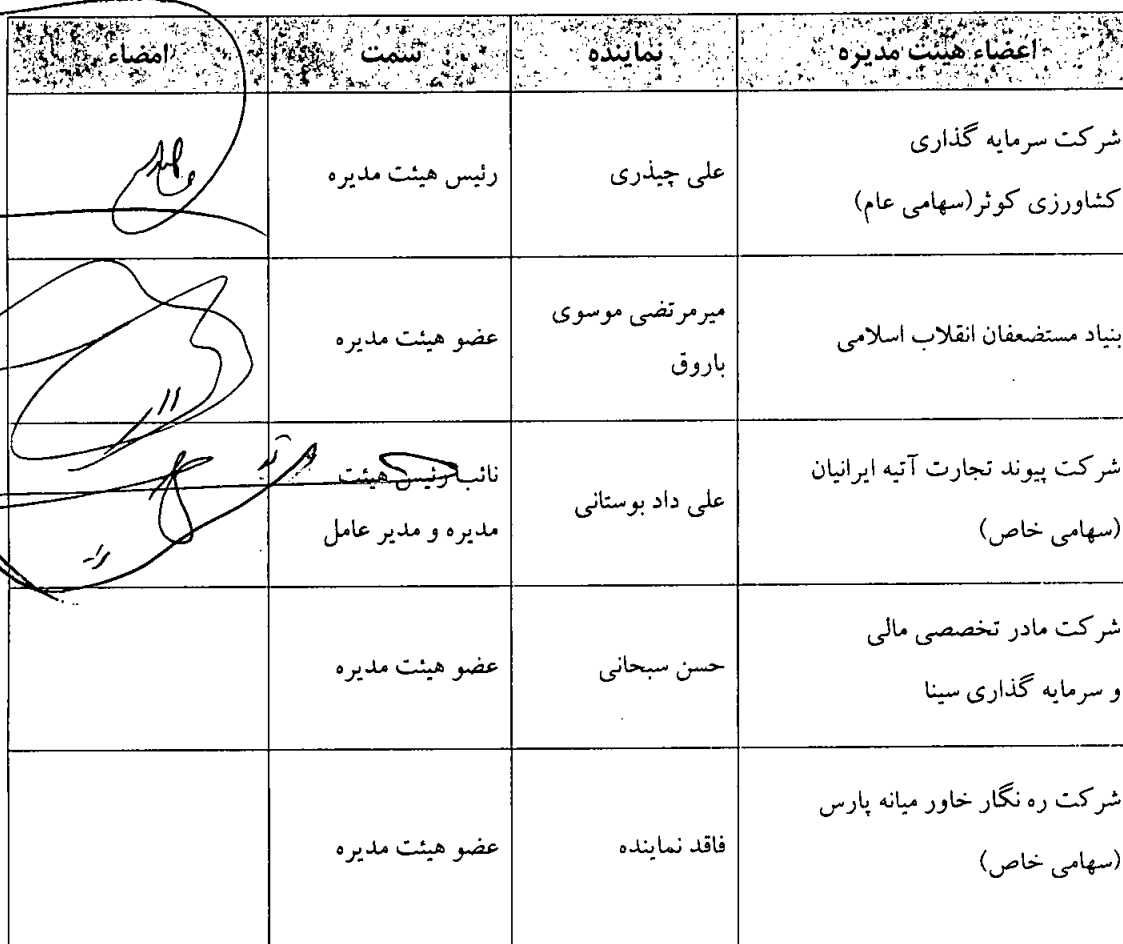 اعضاء هیئت مدیره نماینده سمت امضاء
شرکت سرمایه گذاری
کشاورزی کوثر(سهامی عام)
علی چیذری
رئیس هیئت مدیره
بنیاد مستضعفان انقلاب اسلامی
میرمرتضی موسوی
باروق
عضو هیئت مدیره
شرکت پیوند تجارت آتیه ایرانیان
(سهامی خاص)
علی داد بوستانی
نائب رئیس هیئت
مدیره و مدیر عامل
شرکت مادر تخصصی مالی
و سرمایه گذاری سینا
حسن سبحانی
عضو هیئت مدیره
شرکت ره نگار خاور میانه پارس
(سهامی خاص)
فاقد نماینده
عضو هیئت مدیره